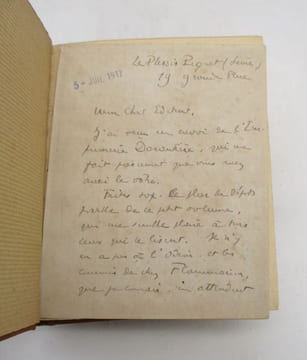 Le Plessis Piquet (Seine)
19 Grande Rue
5 - JUIL 1912
Mon cher Editeur,
J'ai reçu un envoi de l'Im-
primerie Darantière, qui me
fait que vous avez
aussi le vôtre.
Faites
partie de ce petit volume,
qui me semble plaire à tous
ceux qui le lisent. Il n'y
en a pas à l'Odéon, et les
commis de chez Flammarion,
que , en attendent